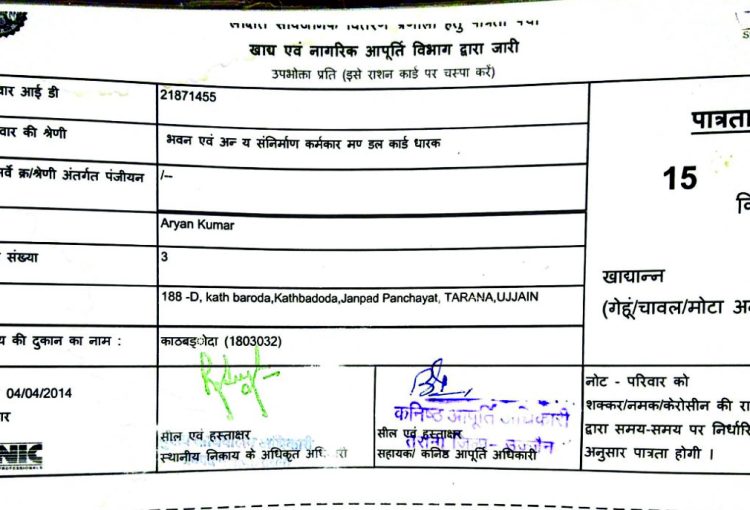 खाद्य एवं नागरिक आपूर्ति विभाग द्वारा जारी
उपभोक्ता प्रति (इसे राशन कार्ड पर चस्पा करें)
वार आई डी 21871455
वार की श्रेणी भवन एवं अन्‍ य संनिर्माण कर्मकार मण्‍ डल कार्ड धारक
सर्वे क्र/श्रेणी अंतर्गत पंजीयन /--
Aryan Kumar
संख्या 3
188 -D, kath baroda,Kathbadoda,Janpad Panchayat, TARANA,UJJAIN
य की दुकान का नाम : काठबड़ोदा (1803032)
पात्रता
15
वि
खाद्यान्न
(गेहूं/चावल/मोटा अ
04/04/2014
ार
NIC
PROFESSIONALS
सील एवं हस्ताक्षर
स्थानीय निकाय के अधिकृत अधिकारी
कनिष्ठ आपूर्ति अधिकारी
सील एवं हस्ताक्षर
तराना जिला - उज्जैन
सहायक/ कनिष्ठ आपूर्ति अधिकारी
नोट - परिवार को
शक्कर/नमक/केरोसीन की रा
द्वारा समय-समय पर निर्धारि
अनुसार पात्रता होगी ।